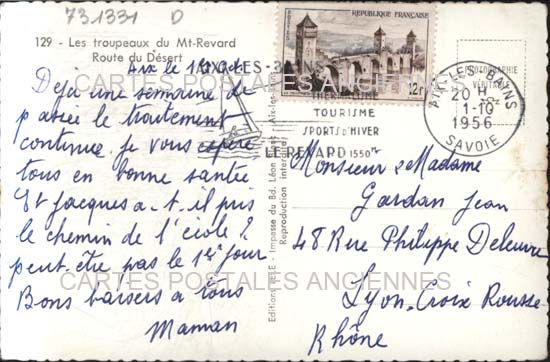 731331 D
129 - Les troupeaux du Mt-Revard
Route du Désert
Aix le 1er Oct
Déjà une semaine de
passée le traitement
continue je vous espère
tous en bonne santée
St Jacques a-t-il pris
le chemin de l'école ?
peut-être pas le 1er jour
Bons baisers a tous
Maman
Impasse du Bd. Léon
Reproduction interdite
REPUBLIQUE FRANÇAISE
12F
AIX-LES-BAINS
TOURISME
SPORTS D'HIVER
LE REVARD 1550m
AIX-LES-BAINS
20H
1-10
1956
SAVOIE
PHOTOGRAPHIE
VÉRITABLE
Monsieur & Madame
Gardan Jean
48 Rue Philippe Deleuvre
Lyon-Croix Rousse
Rhône
CARTES POSTALES ANCIENNES
CARTES POSTALES ANCIENNES